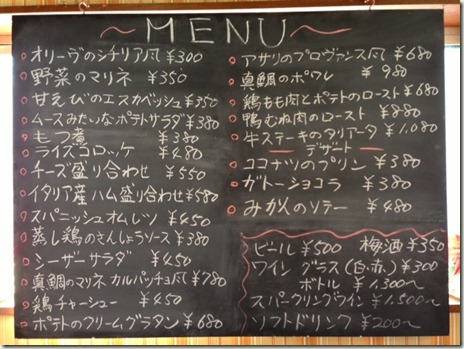 ～MENU～
オリーヴのシチリア風 ¥300
野菜のマリネ ¥350
甘えびのエスカベッシュ ¥350
ムースみたいなポテトサラダ ¥380
もつ煮 ¥380
ライスコロッケ ¥480
チーズ盛り合わせ ¥550
イタリア産ハム盛り合わせ ¥580
スパニッシュオムレツ ¥450
蒸し鶏のさんしょうソース ¥380
シーザーサラダ ¥450
真鯛のマリネ カルパッチョ風 ¥780
鶏チャーシュー ¥450
ポテトのクリームグラタン ¥680
アサリのプロヴァンス風 ¥680
真鯛のポワレ ¥980
鶏もも肉とポテトのロースト ¥680
鴨むね肉のロースト ¥880
牛ステーキのタリアータ ¥1,080
デザート
ココナツのプリン ¥380
ガトーショコラ ¥380
みかんのソテー ¥480
ビール ¥500 梅酒 ¥350
ワイン グラス(白・赤) ¥300
ボトル ¥1,300～
スパークリングワイン ¥1,500～
ソフトドリンク ¥200～